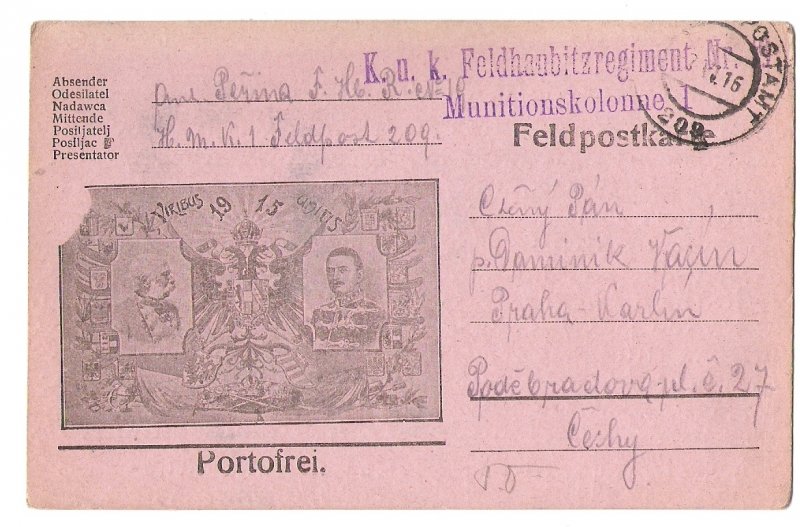 Absender
Odesilatel
Nadawca
Mittende
Positjatelj
Posiljac
Presentator
Ant. Peřina F. H. R. No 10
H. M. K. 1 Feldpost 209.
K. u. k. Feldhaubitzregiment Nr.
Munitionskolonne 1
POSTAMT
16
209
Feldpostkarte
VIRIBUS 1915 UNITIS
Ctěný Pán
p. Dominik Vacín
Praha-Karlín
Poděbradova pl. č. 27
Čechy
Portofrei.